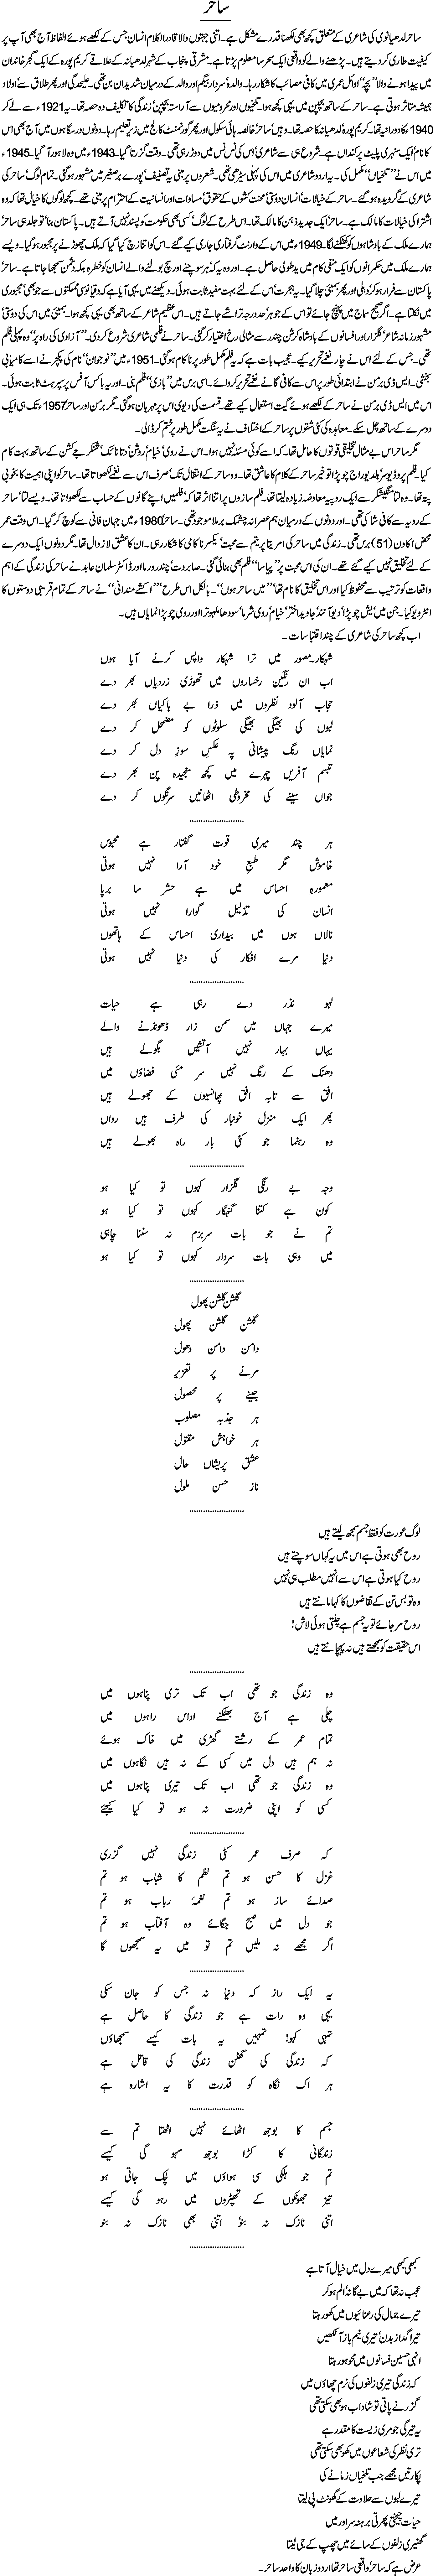 ساحر
ساحر لدھیانوی کی شاعری کے متعلق کچھ بھی لکھنا قدرے مشکل ہے۔ اتنی جہتوں والا قادر الکلام انسان جس کے لکھے ہوئے الفاظ آج بھی آپ پر
کیفیت طاری کر دیتے ہیں۔ پڑھنے والے کو واقعی ایک سحر سا معلوم پڑتا ہے۔ مشرقی پنجاب کے شہر لدھیانہ کے علاقے کریم پورہ کے ایک گجر خاندان
میں پیدا ہونے والا ’’بچہ‘‘ اوائل عمری میں کافی مصائب کا شکار رہا۔ والدہ سردار بیگم اور والد کے درمیان شدید ان بن تھی۔ علیحدگی اور پھر طلاق سے اولاد
ہمیشہ متاثر ہوتی ہے۔ ساحر کے ساتھ بچپن میں یہی کچھ ہوا۔ تلخیوں اور محرومیوں سے آراستہ بچپن زندگی کا تکلیف دہ حصہ تھا۔ یہ 1921ء سے لے کر
1940ء کا دورانیہ تھا۔ کریم پورہ لدھیانہ کا حصہ تھا۔ وہیں ساحر خالصہ ہائی سکول اور پھر گورنمنٹ کالج میں زیر تعلیم رہا۔ دونوں درسگاہوں میں آج بھی اس
کا نام ایک سنہری پلیٹ پر کنداں ہے۔ شروع ہی سے شاعری اس کی نس نس میں دوڑ رہی تھی۔ وقت گزرتا گیا۔ 1943ء میں وہ لاہور آ گیا۔ 1945ء
میں اس نے ’’تلخیاں‘‘ مکمل کی۔ یہ اردو شاعری میں اس کی پہلی سیڑھی تھی۔ شعروں پر مبنی یہ تصنیف پورے برصغیر میں مشہور ہو گئی۔ تمام لوگ ساحر کی
شاعری کے گرویدہ ہو گئے۔ ساحر کی شاعری انسان دوستی محنت کشوں کے حقوق مساوات اور انسانیت کے احترام پر مبنی تھے۔ کچھ لوگوں کا خیال تھا کہ وہ
اشتراکی خیالات کا مالک ہے۔ ساحر ایک جدید ذہن کا مالک تھا۔ اس طرح کے لوگ کسی بھی حکومت کو پسند نہیں آتے ہیں۔ پاکستان بنا تو جلد ہی ساحر
ہمارے ملک کے بادشاہوں کو کھٹکنے لگا۔ 1949ء میں اس کے وارنٹ گرفتاری جاری کیے گئے۔ اس کو اتنا زچ کیا گیا کہ ملک چھوڑنے پر مجبور ہو گیا۔ ویسے
ہمارے ملک میں حکمرانوں کو ایک منفی کام میں ید طولی حاصل ہے۔ اور وہ یہ کہ ہر سوچنے اور سچ بولنے والے انسان کو خطرہ بلکہ دشمن سمجھا جاتا ہے۔ ساحر
پاکستان سے فرار ہو کر دہلی اور پھر بمبئی چلا گیا۔ یہ ہجرت اس کے لئے بہت مفید ثابت ہوئی۔ دیکھنے میں یہی آیا ہے کہ دقیانوسی مملکتوں سے جو بھی مجبوری
میں نکلتا ہے۔ اگر صحیح سماج میں پہنچ جائے تو اس کے جوہر حد درجہ تراشے جاتے ہیں۔ اس عظیم شاعر کے ساتھ بھی یہی کچھ ہوا۔ بمبئی میں اس کی دوستی
مشہور زمانہ شاعر گلزار اور افسانوں کے بادشاہ کرشن چندر سے مثالی رخ اختیار کر گئی۔ ساحر نے فلمی شاعری شروع کر دی۔ ’’آزادی کی راہ پر‘‘ وہ پہلی فلم
تھی۔ جس کے لئے اس نے چار نغمے تحریر کیے۔ عجیب بات ہے کہ یہ فلم مکمل طور پر ناکام ہو گئی۔ 1951ء میں ’’نوجوان‘‘ نام کی پکچر نے اسے کامیابی
بخشی۔ ایس ڈی برمن نے ابتدائی طور پر اس سے کافی گانے نغمے تحریر کروائے۔ اسی برس میں ’’بازی‘‘ فلم بنی۔ اور یہ باکس آفس پر سپر ہٹ ثابت ہوئی۔
اس میں ایس ڈی برمن نے ساحر کے لکھے ہوئے گیت استعمال کیے تھے۔ قسمت کی دیوی اس پر مہربان ہو گئی۔ مگر برمن اور ساحر 1957ء تک ہی ایک
دوسرے کے ساتھ چل سکے۔ معاہدہ کی کئی شقوں پر ساحر کے اختلاف نے یہ سنگت مکمل طور پر ختم کر ڈالی۔
مگر ساحر اس بے مثال تخلیقی قوتوں کا حامل تھا۔ کہ اسے کوئی مسئلہ نہیں ہوا۔ اس نے روی خیام روشن دتا نائک شنکر جے کشن کے ساتھ بہت کام
کیا۔ فلم پروڈیوسر بلد یوراج چوپڑا تو خیر ساحر کے کلام کا عاشق تھا۔ وہ ساحر کے انتقال تک صرف اس سے نغمے لکھواتا تھا۔ ساحر کو اپنی اہمیت کا بخوبی
پتہ تھا۔ وہ لتا منگیشکر سے ایک روپیہ معاوضہ زیادہ لیتا تھا۔ فلم سازوں پر اتنا اثر تھا کہ فلمیں اپنے گانوں کے حساب سے لکھواتا تھا۔ ویسے لتا ساحر
کے رویہ سے کافی شاکی تھی۔ اور دونوں کے درمیان ہم عصرانہ چشمک برملا موجود تھی۔ ساحر 1980ء میں جہان فانی سے کوچ کر گیا۔ اس وقت عمر
محض اکاون (51) برس تھی۔ زندگی میں ساحر کی امریتا پریتم سے محبت یکسر ناکامی کا شکار رہی۔ ان کا عشق لازوال تھا۔ مگر دونوں ایک دوسرے
کے لئے تخلیق نہیں کیے گئے تھے۔ ان کی اس محبت پر ’’پیاسا‘‘ فلم بھی بنائی گئی۔ صابر دت چندر ورما اور ڈاکٹر سلمان عابد نے ساحر کی زندگی کے اہم
واقعات کو ترتیب سے محفوظ کیا اور اس تخلیق کا نام تھا ’’میں ساحر ہوں‘‘۔ بالکل اس طرح ’’اکشے منڈانی‘‘ نے ساحر کے تمام قریبی دوستوں کا
انٹرویو کیا۔ جن میں یش چوپڑا دیو آنند جاوید اختر خیام روی شرما سودھا ملہوترا اور روی چوپڑا نمایاں ہیں۔
اب کچھ ساحر کی شاعری کے چند اقتباسات۔
شہکار۔مصور میں ترا شہکار واپس کرنے آیا ہوں
اب ان رنگین رخساروں میں تھوڑی زردیاں بھر دے
حجاب آلود نظروں میں ذرا بے باکیاں بھر دے
لبوں کی بھیگی بھیگی سلوٹوں کو مضمحل کر دے
نمایاں رنگ پیشانی پہ عکس سوز دل کر دے
تبسم آفریں چہرے میں کچھ سنجیدہ پن بھر دے
جواں سینے کی مخروطی اٹھانیں سرنگوں کر دے
........................
ہر چند میری قوت گفتار ہے محبوس
خاموش مگر طبع خود آرا نہیں ہوتی
معمورہ احساس میں ہے حشر سا برپا
انسان کی تذلیل گوارا نہیں ہوتی
نالاں ہوں میں بیداری احساس کے ہاتھوں
دنیا مرے افکار کی دنیا نہیں ہوتی
........................
لہو نذر دے رہی ہے حیات
میرے جہاں میں سمن زار ڈھونڈنے والے
یہاں بہار نہیں آتشیں بگولے ہیں
دھنک کے رنگ نہیں سر مئی فضاؤں میں
افق سے تابہ افق پھانسیوں کے جھولے ہیں
پھر ایک منزل خونبار کی طرف ہیں رواں
وہ رہنما جو کئی بار راہ بھولے ہیں
........................
وجہ بے رنگی گلزار کہوں تو کیا ہو
کون ہے کتنا گنہگار کہوں تو کیا ہو
تم نے جو بات سربزم نہ سننا چاہی
میں وہی بات سردار کہوں تو کیا ہو
........................
گلشن گلشن پھول
گلشن گلشن پھول
دامن دامن دھول
مرنے پر تعزیر
جینے پر محصول
ہر جذبہ مصلوب
ہر خواہش مقتول
عشق پریشاں حال
ناز حسن ملول
........................
لوگ عورت کو فقط جسم سمجھ لیتے ہیں
روح بھی ہوتی ہے اس میں یہ کہاں سوچتے ہیں
روح کیا ہوتی ہے اس سے انہیں مطلب ہی نہیں
وہ تو بس تن کے تقاضوں کا کہا مانتے ہیں
روح مر جائے تو یہ جسم ہے چلتی ہوئی لاش!
اس حقیقت کو سمجھتے ہیں نہ پہچانتے ہیں
........................
وہ زندگی جو تھی اب تک تری پناہوں میں
چلی ہے آج بھٹکنے اداس راہوں میں
تمام عمر کے رشتے گھڑی میں خاک ہوئے
نہ ہم ہیں دل میں کسی کے نہ ہیں نگاہوں میں
وہ زندگی جو تھی اب تک تیری پناہوں میں
کسی کو اپنی ضرورت نہ ہو تو کیا کیجئے
........................
کہ صرف عمر کٹی زندگی نہیں گزری
غزل کا حسن ہو تم نظم کا شباب ہو تم
صدائے ساز ہو تم نغمۂ رباب ہو تم
جو دل میں صبح جگائے وہ آفتاب ہو تم
اگر مجھے نہ ملیں تم تو میں یہ سمجھوں گا
........................
یہ ایک راز کہ دنیا نہ جس کو جان سکی
یہی وہ رات ہے جو زندگی کا حاصل ہے
تمہی کہو! تمہیں یہ بات کیسے سمجھاؤں
کہ زندگی کی گھٹن زندگی کی قاتل ہے
ہر اک نگاہ کو قدرت کا یہ اشارہ ہے
........................
جسم کا بوجھ اٹھائے نہیں اٹھتا تم سے
زندگانی کا کڑا بوجھ سہو گی کیسے
تم جو ہلکی سی ہواؤں میں لچک جاتی ہو
تیز جھونکوں کے تھپیڑوں میں رہو گی کیسے
اتنی نازک نہ بنو اتنی بھی نازک نہ بنو
........................
کبھی کبھی میرے دل میں خیال آتا ہے
عجب نہ تھا کہ میں بے گانہ الم ہو کر
تیرے جمال کی رعنائیوں میں کھو رہتا
تیرا گداز بدن تیری نیم باز آنکھیں
انہی حسین فسانوں میں محو ہو رہتا
کہ زندگی تیری زلفوں کی نرم چھاؤں میں
گزرنے پاتی تو شاداب ہو بھی سکتی تھی
یہ تیرگی جو مری زیست کا مقدر ہے
تری نظر کی شعاعوں میں کھو بھی سکتی تھی
پکارتیں مجھے جب تلخیاں زمانے کی
تیرے لبوں سے حلاوت کے گھونٹ پی لیتا
حیات چیختی پھرتی برہنہ سر اور میں
گھنیری زلفوں کے سائے میں چھپ کے جی لیتا
عرض ہے کہ ساحر واقعی ساحر تھا اردو زبان کا واحد ساحر۔